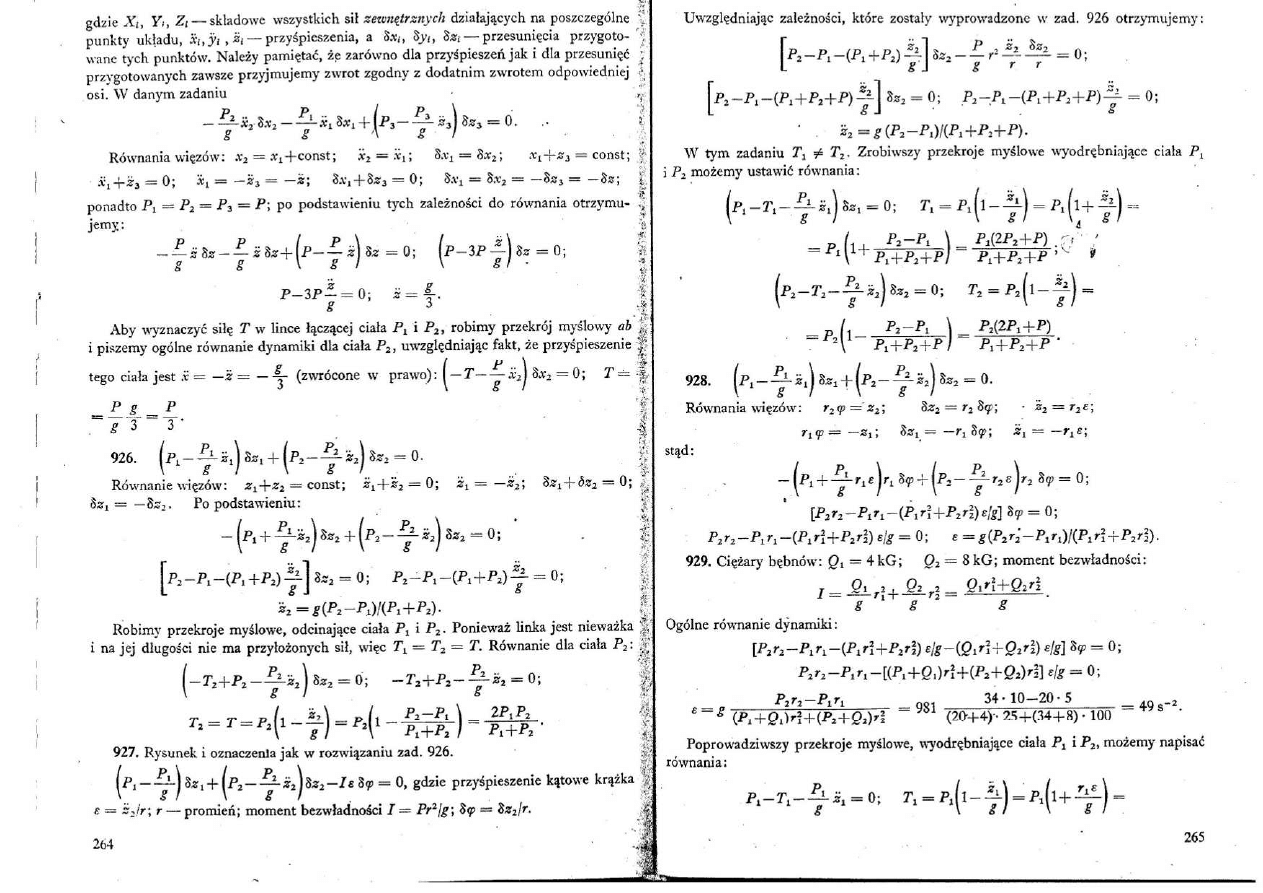 gdzie Xᵢ, Yᵢ, Zᵢ — składowe wszystkich sił zewnętrznych działających na poszczególne
punkty układu, ẍᵢ, ÿᵢ, z̈ᵢ — przyśpieszenia, a δxᵢ, δyᵢ, δzᵢ — przesunięcia przygoto-
wane tych punktów. Należy pamiętać, że zarówno dla przyśpieszeń jak i dla przesunięć
przygotowanych zawsze przyjmujemy zwrot zgodny z dodatnim zwrotem odpowiedniej
osi. W danym zadaniu
− P₂/g ẍ₂ δx₂ − P₁/g ẍ₁ δx₁ + (P₃ − P₃/g z̈₃) δz₃ = 0.
Równania więzów: x₂ = x₁+const; ẍ₂ = ẍ₁; δx₁ = δx₂; x₁+z₃ = const;
ẍ₁+z̈₃ = 0; ẍ₁ = −z̈₃ = −z̈; δx₁+δz₃ = 0; δx₁ = δx₂ = −δz₃ = −δz;
ponadto P₁ = P₂ = P₃ = P; po podstawieniu tych zależności do równania otrzymu-
jemy:
− P/g z̈ δz − P/g z̈ δz + (P − P/g z̈) δz = 0; (P−3P z̈/g) δz = 0;
P−3P z̈/g = 0; z̈ = g/3.
Aby wyznaczyć siłę T w lince łączącej ciała P₁ i P₂, robimy przekrój myślowy ab
i piszemy ogólne równanie dynamiki dla ciała P₂, uwzględniając fakt, że przyśpieszenie
tego ciała jest ẍ = −z̈ = − g/3 (zwrócone w prawo): (−T − P/g ẍ₂) δx₂ = 0; T =
= P/g g/3 = P/3.
926. (P₁ − P₁/g z̈₁) δz₁ + (P₂ − P₂/g z̈₂) δz₂ = 0.
Równanie więzów: z₁+z₂ = const; z̈₁+z̈₂ = 0; z̈₁ = −z̈₂; δz₁+δz₂ = 0;
δz₁ = −δz₂. Po podstawieniu:
− (P₁ + P₁/g z̈₂) δz₂ + (P₂ − P₂/g z̈₂) δz₂ = 0;
[P₂−P₁−(P₁+P₂) z̈₂/g] δz₂ = 0; P₂−P₁−(P₁+P₂) z̈₂/g = 0;
z̈₂ = g(P₂−P₁)/(P₁+P₂).
Robimy przekroje myślowe, odcinające ciała P₁ i P₂. Ponieważ linka jest nieważka
i na jej długości nie ma przyłożonych sił, więc T₁ = T₂ = T. Równanie dla ciała P₂:
(−T₂+P₂ − P₂/g z̈₂) δz₂ = 0; −T₂+P₂ − P₂/g z̈₂ = 0;
T₂ = T = P₂(1 − z̈₂/g) = P₂(1 − (P₂−P₁)/(P₁+P₂)) = 2P₁P₂/(P₁+P₂).
927. Rysunek i oznaczenia jak w rozwiązaniu zad. 926.
(P₁ − P₁/g) δz₁ + (P₂ − P₂/g z̈₂) δz₂ − Iε δφ = 0, gdzie przyśpieszenie kątowe krążka
ε = z̈₂/r; r — promień; moment bezwładności I = Pr²/g; δφ = δz₂/r.
264
Uwzględniając zależności, które zostały wyprowadzone w zad. 926 otrzymujemy:
[P₂−P₁−(P₁+P₂) z̈₂/g] δz₂ − P/g r² z̈₂/r δz₂/r = 0;
[P₂−P₁−(P₁+P₂+P) z̈₂/g] δz₂ = 0; P₂−P₁−(P₁+P₂+P) z̈₂/g = 0;
z̈₂ = g (P₂−P₁)/(P₁+P₂+P).
W tym zadaniu T₁ ≠ T₂. Zrobiwszy przekroje myślowe wyodrębniające ciała P₁
i P₂ możemy ustawić równania:
(P₁−T₁ − P₁/g z̈₁) δz₁ = 0; T₁ = P₁(1 − z̈₁/g) = P₁(1 + z̈₂/g) =
= P₁(1 + (P₂−P₁)/(P₁+P₂+P)) = P₁(2P₂+P)/(P₁+P₂+P);
(P₂−T₂ − P₂/g z̈₂) δz₂ = 0; T₂ = P₂(1 − z̈₂/g) =
= P₂(1 − (P₂−P₁)/(P₁+P₂+P)) = P₂(2P₁+P)/(P₁+P₂+P).
928. (P₁ − P₁/g z̈₁) δz₁ + (P₂ − P₂/g z̈₂) δz₂ = 0.
Równania więzów: r₂φ = z₂; δz₂ = r₂ δφ; z̈₂ = r₂ε;
r₁φ = −z₁; δz₁ = −r₁ δφ; z̈₁ = −r₁ε;
stąd:
− (P₁ + P₁/g r₁ε) r₁ δφ + (P₂ − P₂/g r₂ε) r₂ δφ = 0;
[P₂r₂−P₁r₁−(P₁r₁²+P₂r₂²) ε/g] δφ = 0;
P₂r₂−P₁r₁−(P₁r₁²+P₂r₂²) ε/g = 0; ε = g(P₂r₂−P₁r₁)/(P₁r₁²+P₂r₂²).
929. Ciężary bębnów: Q₁ = 4 kG; Q₂ = 8 kG; moment bezwładności:
I = Q₁/g r₁² + Q₂/g r₂² = (Q₁r₁²+Q₂r₂²)/g.
Ogólne równanie dynamiki:
[P₂r₂−P₁r₁−(P₁r₁²+P₂r₂²) ε/g−(Q₁r₁²+Q₂r₂²) ε/g] δφ = 0;
P₂r₂−P₁r₁−[(P₁+Q₁)r₁²+(P₂+Q₂)r₂²] ε/g = 0;
ε = g (P₂r₂−P₁r₁)/((P₁+Q₁)r₁²+(P₂+Q₂)r₂²) = 981 (34·10−20·5)/((20+4)·25+(34+8)·100) = 49 s⁻².
Poprowadziwszy przekroje myślowe, wyodrębniające ciała P₁ i P₂, możemy napisać
równania:
P₁−T₁ − P₁/g z̈₁ = 0; T₁ = P₁(1 − z̈₁/g) = P₁(1 + r₁ε/g) =
265